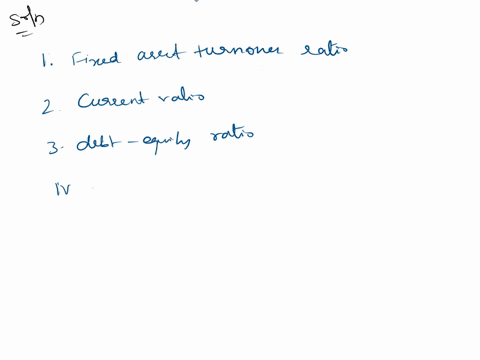 Soln
1. Fixed asset turnover ratio
2. Current ratio
3. debt-equity ratio
IV